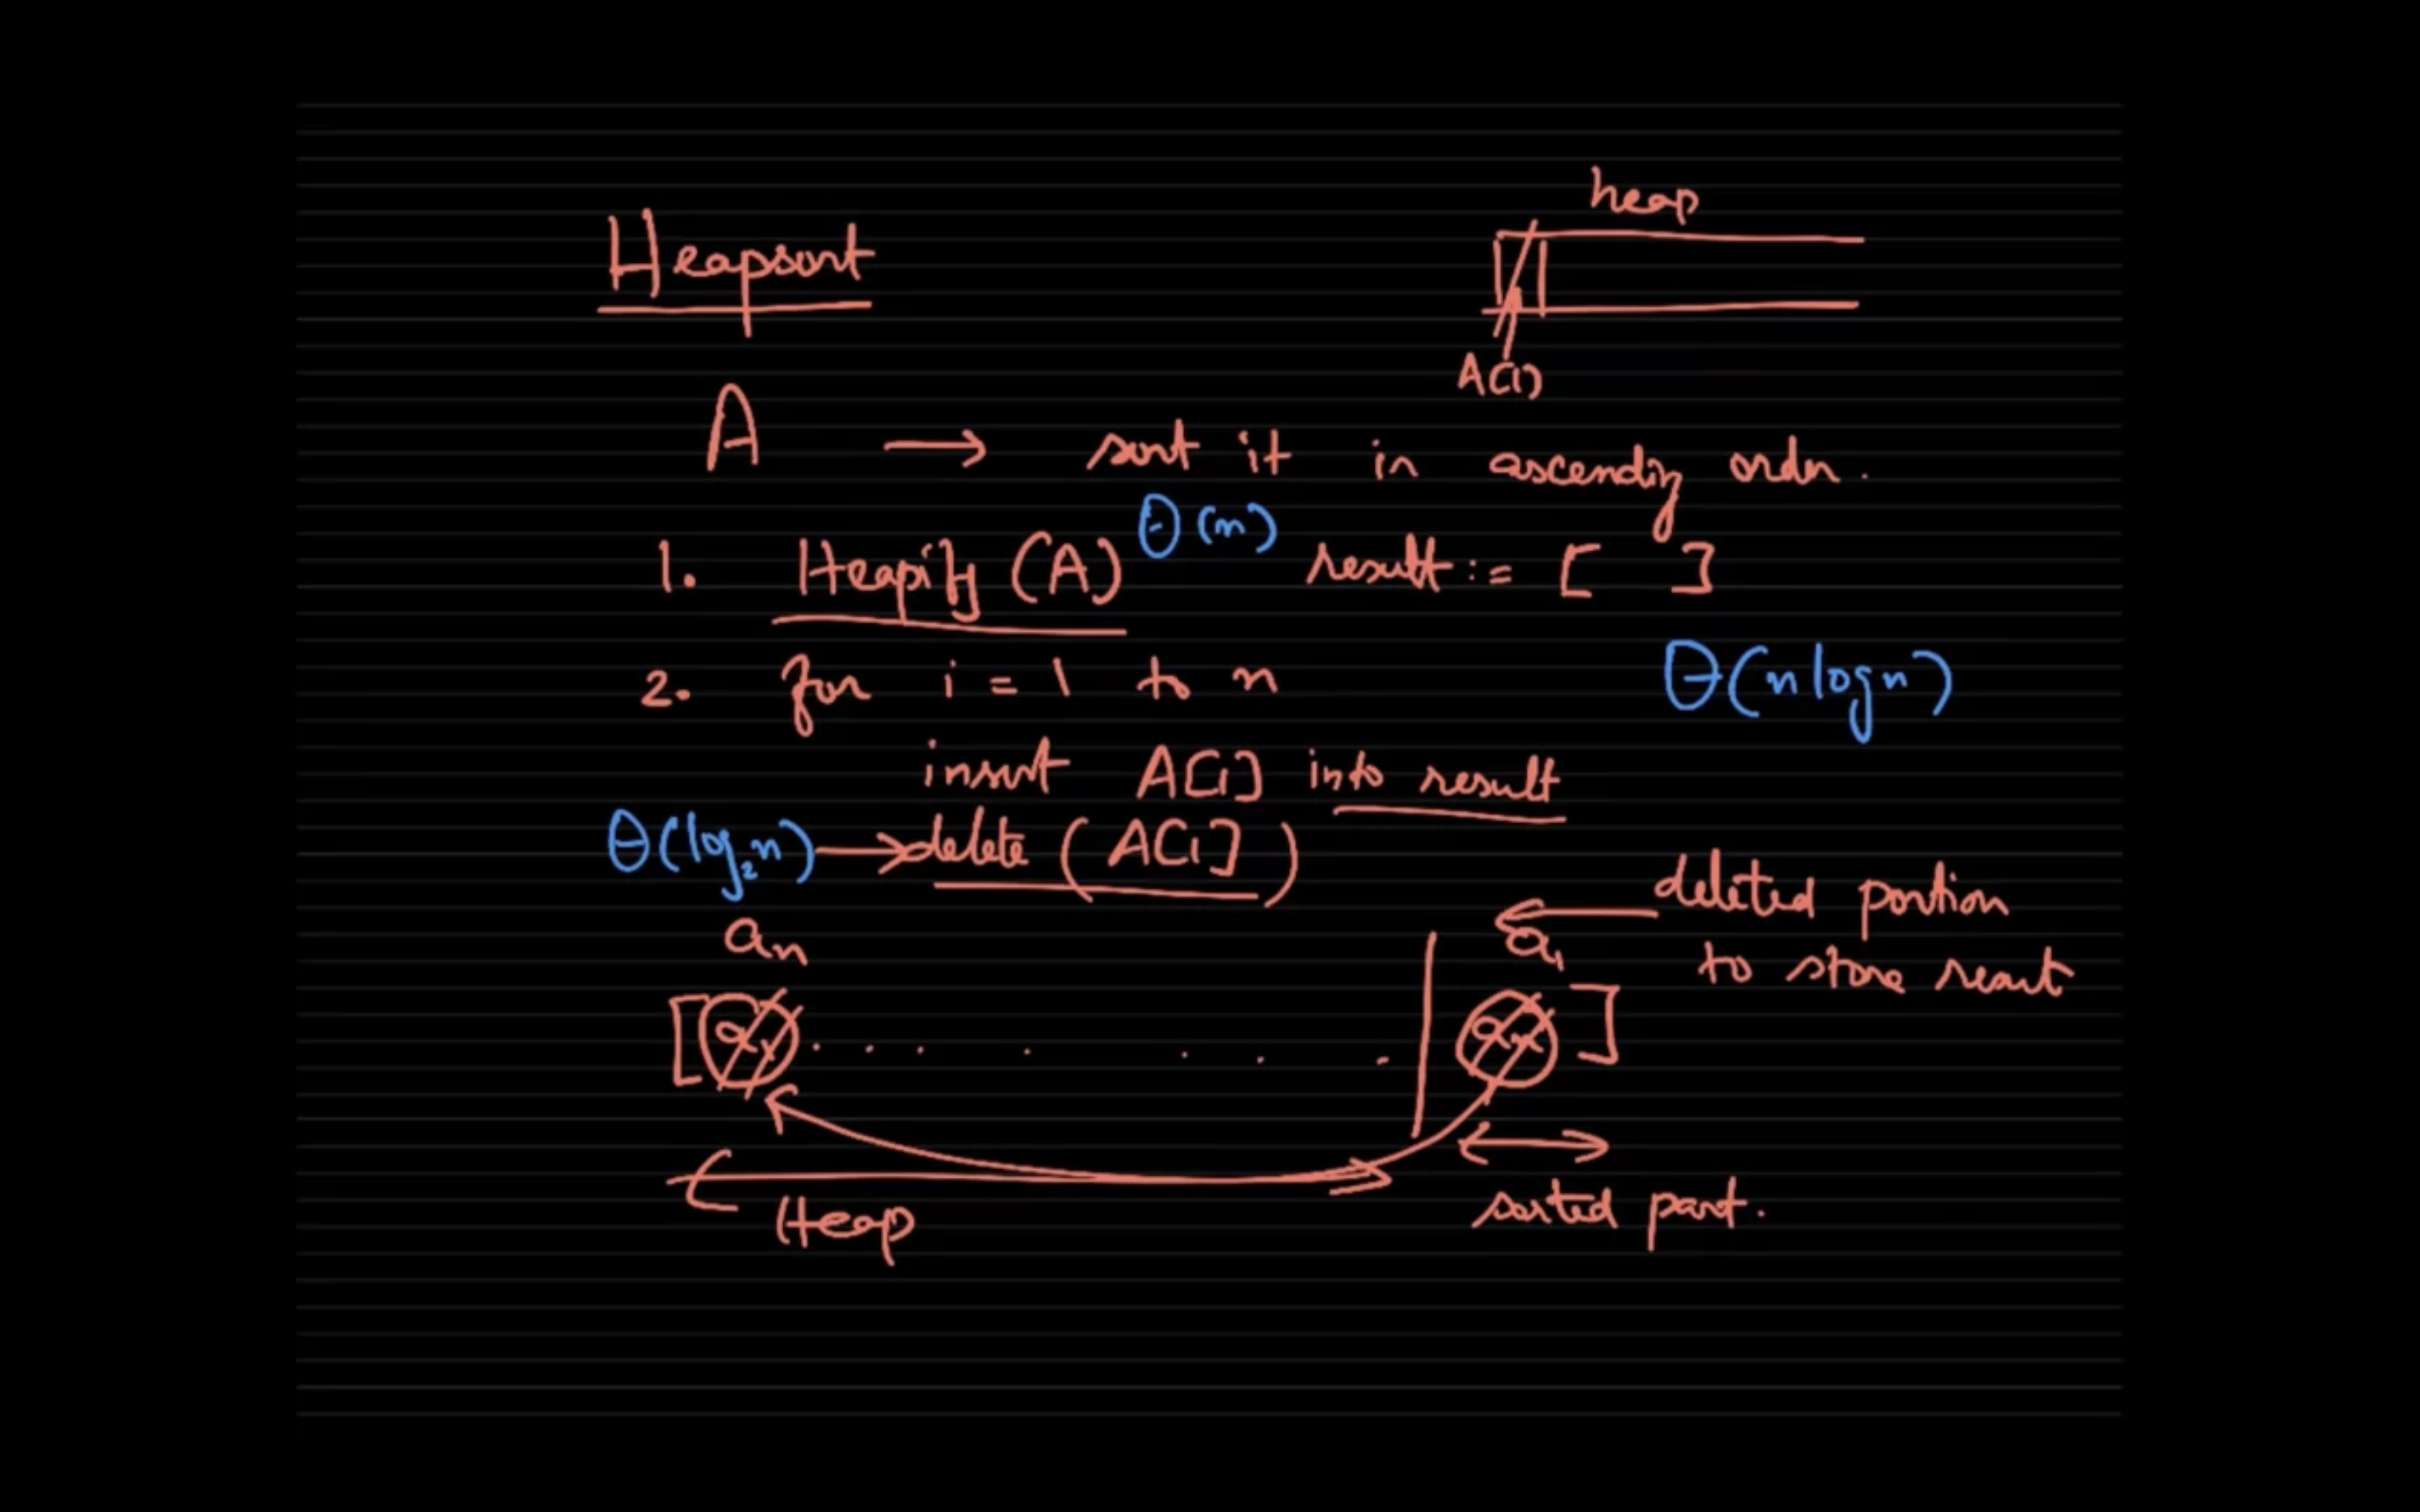 Heapsort
heap
A[1]
A → sort it in ascending order.
1. Heapify (A) Θ(n) result := [ ]
2. for i = 1 to n
Θ(n log n)
insert A[1] into result
Θ(log₂n) → delete (A[1])
← deleted portion
to store result
aₙ a₁
[ a₁ . . . . . . . | aₙ ]
Heap
sorted part.